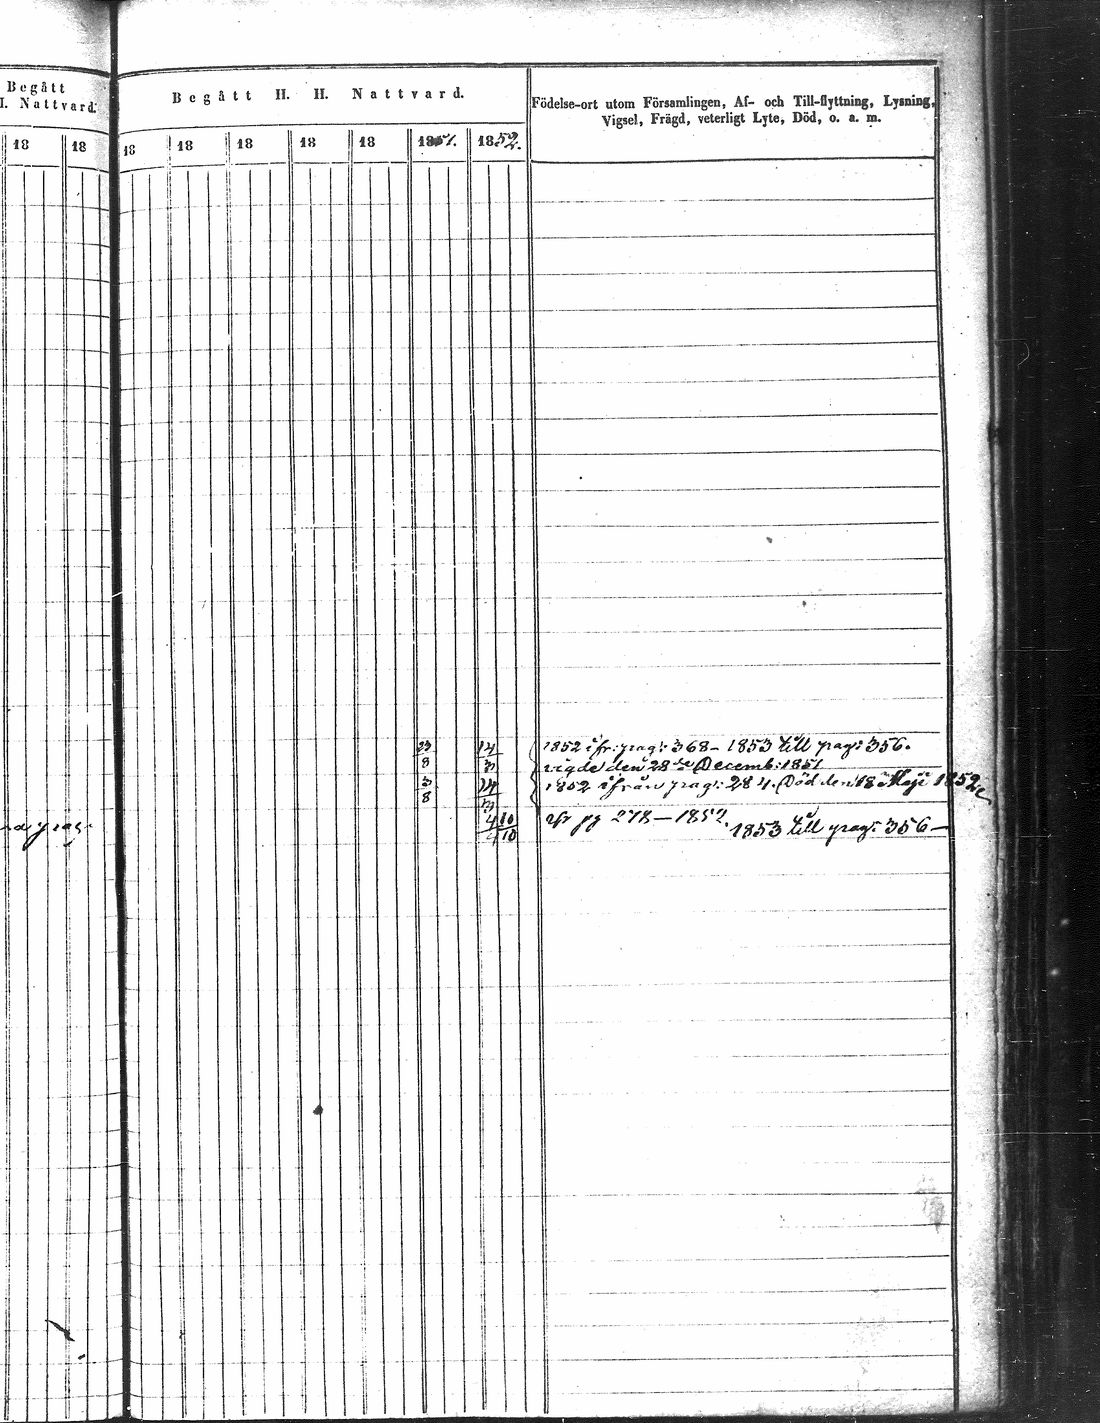 Begått
H. Nattvard.
Begått H. H. Nattvard.
Födelse-ort utom Församlingen, Af- och Till-flyttning, Lysning,
Vigsel, Frägd, veterligt Lyte, Död, o. a. m.
18 18 18 18 18 18 18 1851. 1852.
1852 ifr: pag: 368 – 1853 till pag: 356.
8
vigde den 28de Decemb: 1851
3
8
1852 ifrån pag: 284. Död den 18 Maji 1852.
4 10
pg 278 — 1852.
pag:
4 10
1853 till pag: 356 —